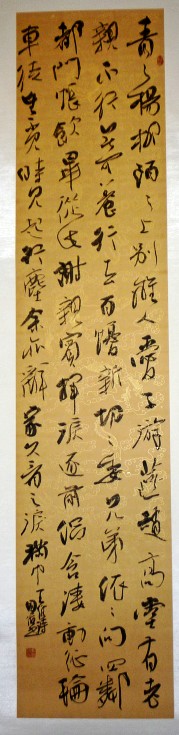 青々楊柳陌々上別離人愛子遊燕趙高堂有老
親不行無可養行去百憂新切々委兄弟依々向四鄰
都門帳飲畢從此謝親賓揮淚逐前侶含淒動征輪
車徒時見起行塵余亦辭家久看之淚滿巾王維詩